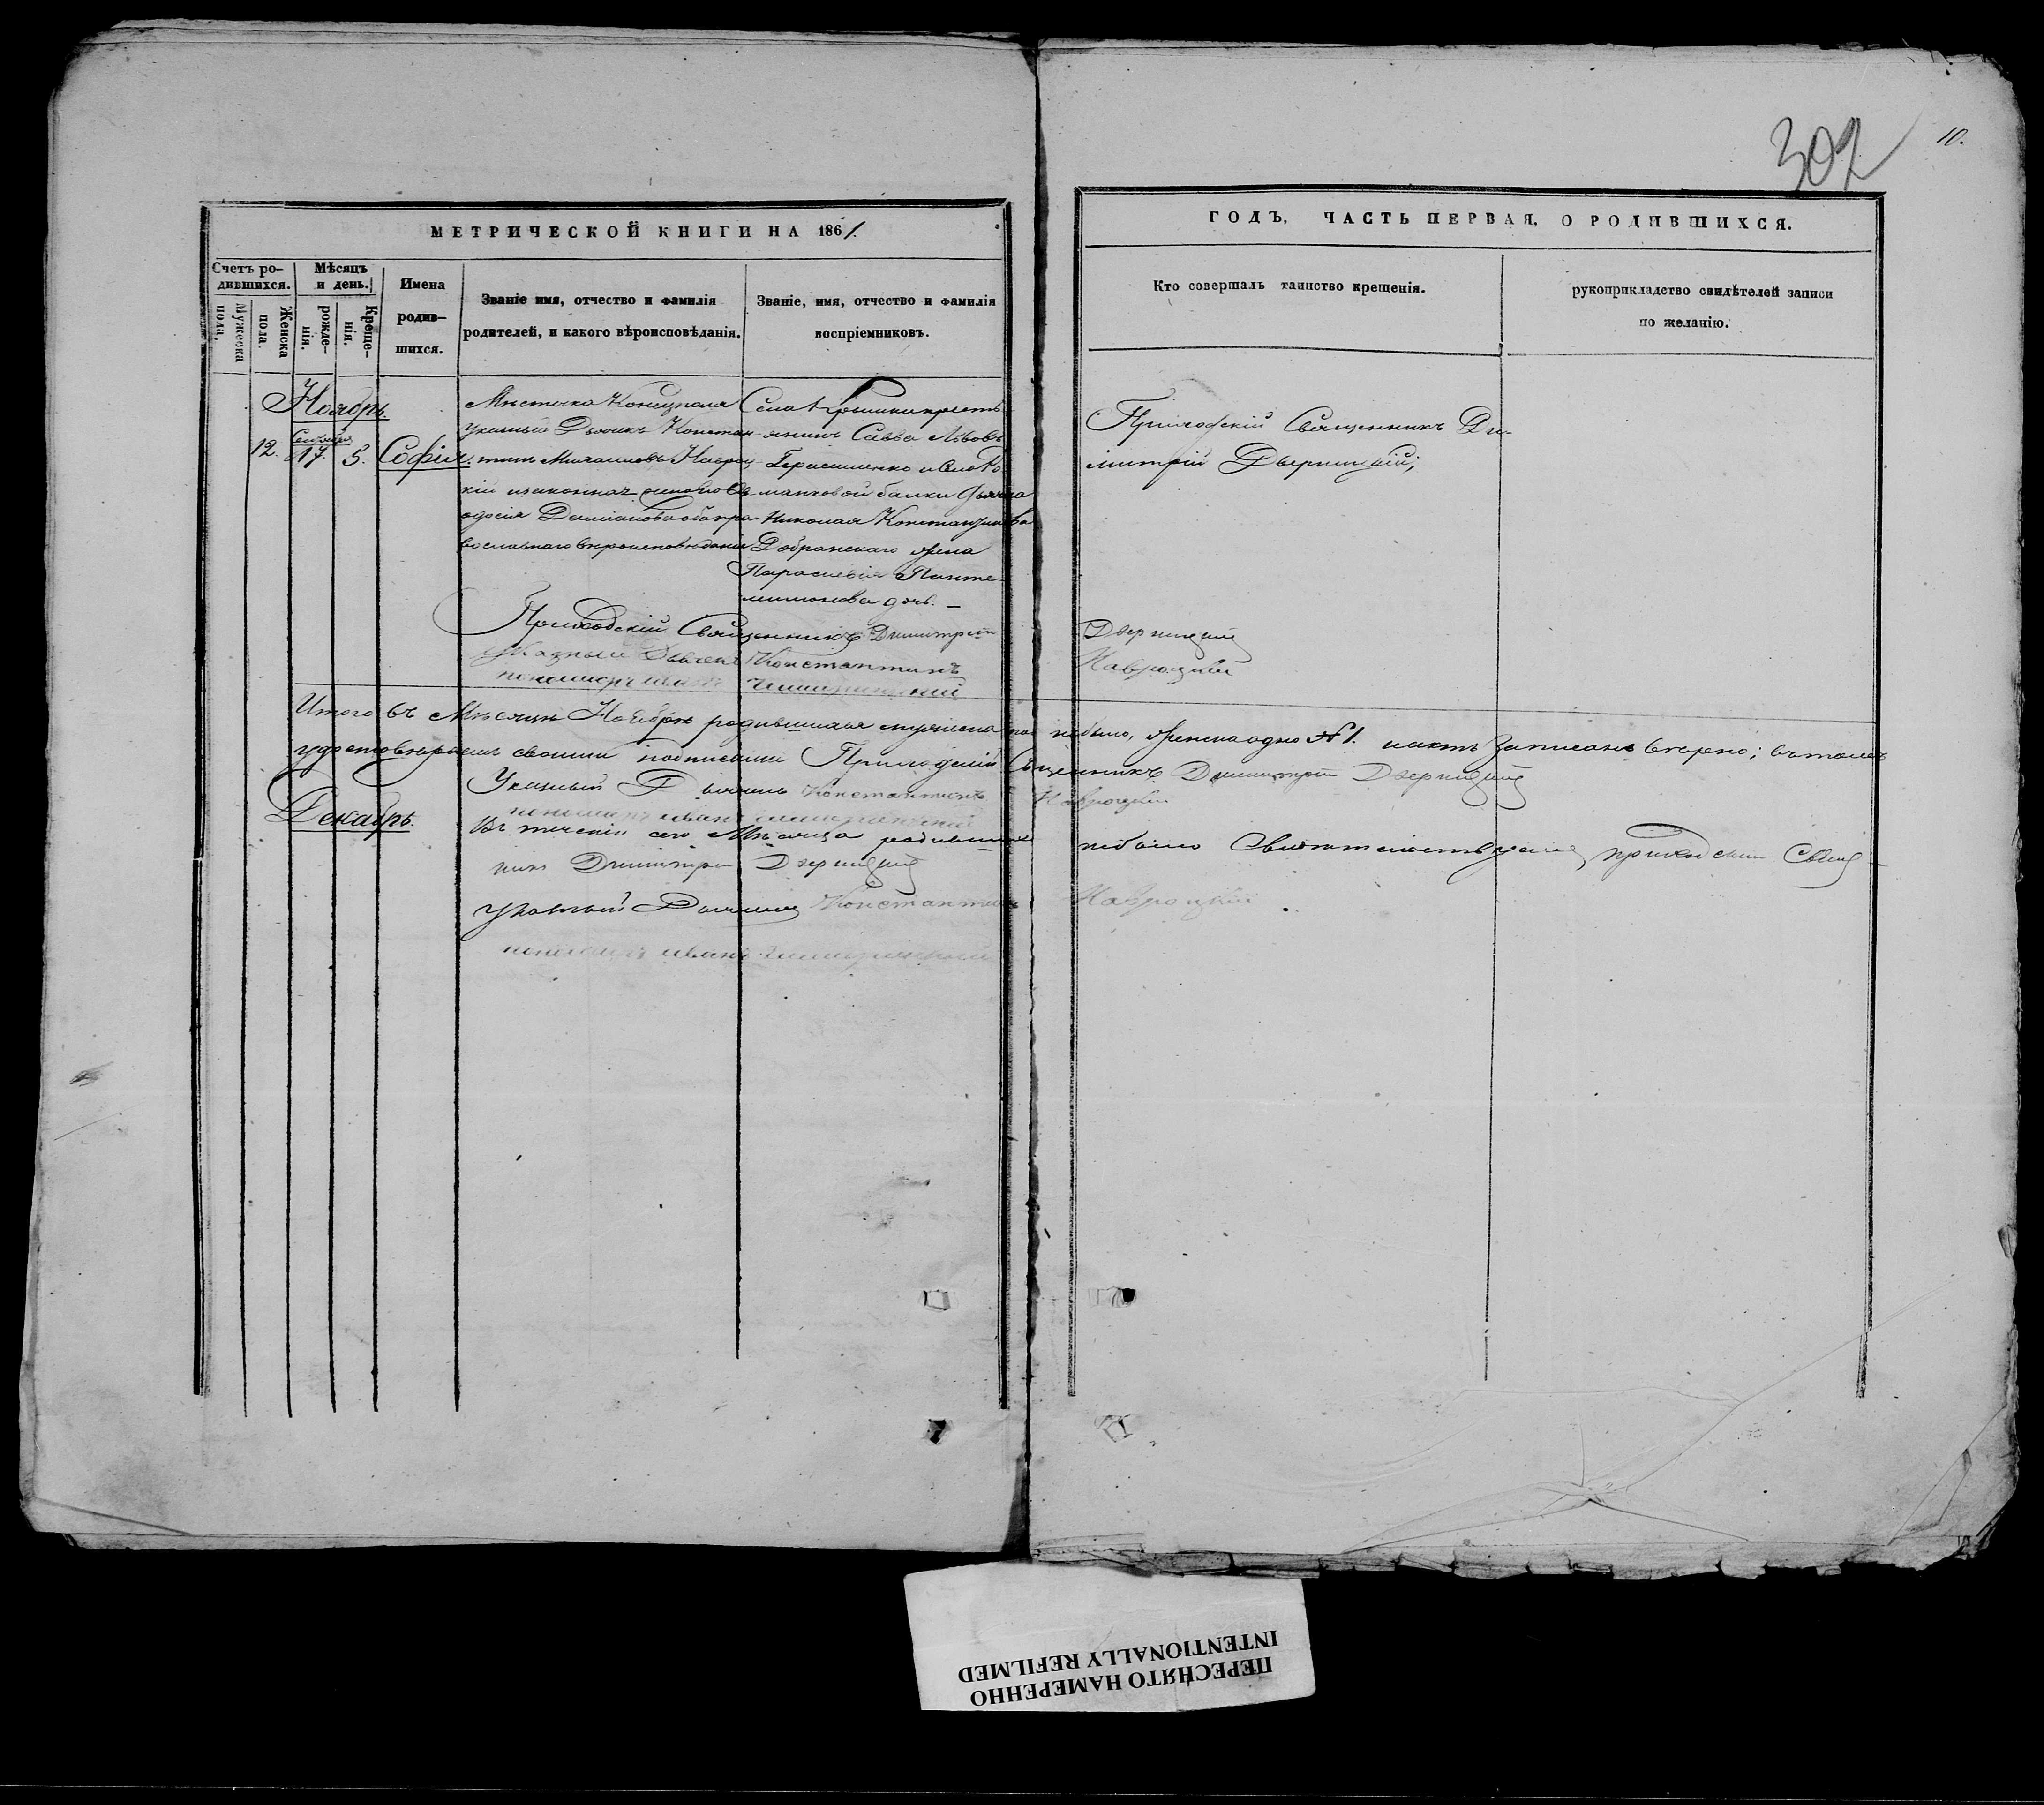 302
10.
МЕТРИЧЕСКОЙ КНИГИ НА 1861.
ГОДЪ, ЧАСТЬ ПЕРВАЯ, О РОДИВШИХСЯ.
Счетъ ро-
дившихся.
Мужеска
пола.
Женска
пола.
Мѣсяцъ
и день.
рожде-
нія.
Креще-
нія.
Имена
родив-
шихся.
Званіе имя, отчество и фамилія
родителей, и какого вѣроисповѣданія.
Званіе, имя, отчество и фамилія
воспріемниковъ.
Кто совершалъ таинство крещенія.
рукоприкладство свидѣтелей записи
по желанію.
Ноябрь.
12.
17.
5.
Софія.
Мѣстечка Конецполя
указный Дьячекъ Констан-
тинъ Михаиловъ Навроц-
кій изаконная его Ѳе-
одосія Даміанова оба пра-
вославнаго вѣроисповѣданія
Села кресть-
янинъ Савва Львовъ
Герасименко и Села Ро-
манковой балки дьячка
Николая Константинова
Добранскаго жена
Параскевія Панте-
лимонова дочь. —
Приходскій Священникъ Ди-
митрій Дверницкій;
Приходскій Священникъ Димитрій Дверницкій
Указный Дьячекъ Константинъ Навроцкій
пономарь иванъ
Итого въ Мѣсяцѣ Ноябрѣ родившихся мужеска пола небыло, женска одно № 1. записанъ вѣрно; въ томъ
удостовѣряемъ своими подписами Приходскій Священникъ Димитрій Дверницкій
Указный Дьячекъ Константинъ Навроцкій
пономарь иванъ
Декабрь.
Въ теченіи сего Мѣсяца родившихся небыло приходскій Священ-
никъ Димитрій Дверницкій
указный Дьячекъ Константинъ Навроцкій
пономарь иванъ
ПЕРЕСНЯТО НАМЕРЕННО
INTENTIONALLY REFILMED